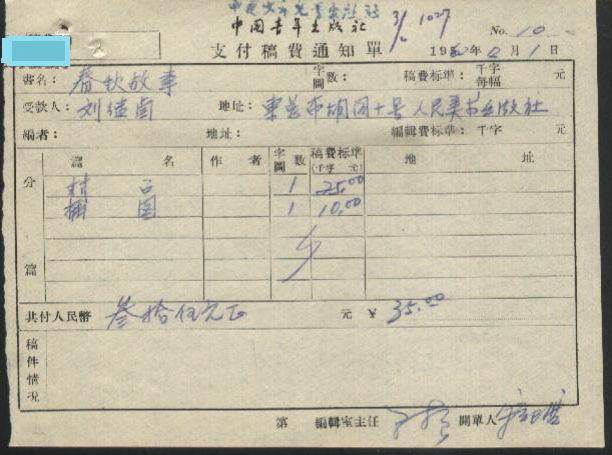 中国青年出版社
3/10 1027
No. 10
支付稿費通知單 195 年 月1日
書名：春秋故事 字圖數： 稿費标準：千字每幅 元
受款人：刘继卣 地址：東总布胡同十号人民美术出版社
編者： 地址： 編輯費标準：千字 元
分篇 篇名 作者 字圖數 稿費标準(千字 元) 地址
封 1 25.00
插圖 1 10.00
共付人民幣 叁拾伍元正 元 ￥ 35.00
稿件情况
第 編輯室主任 開單人